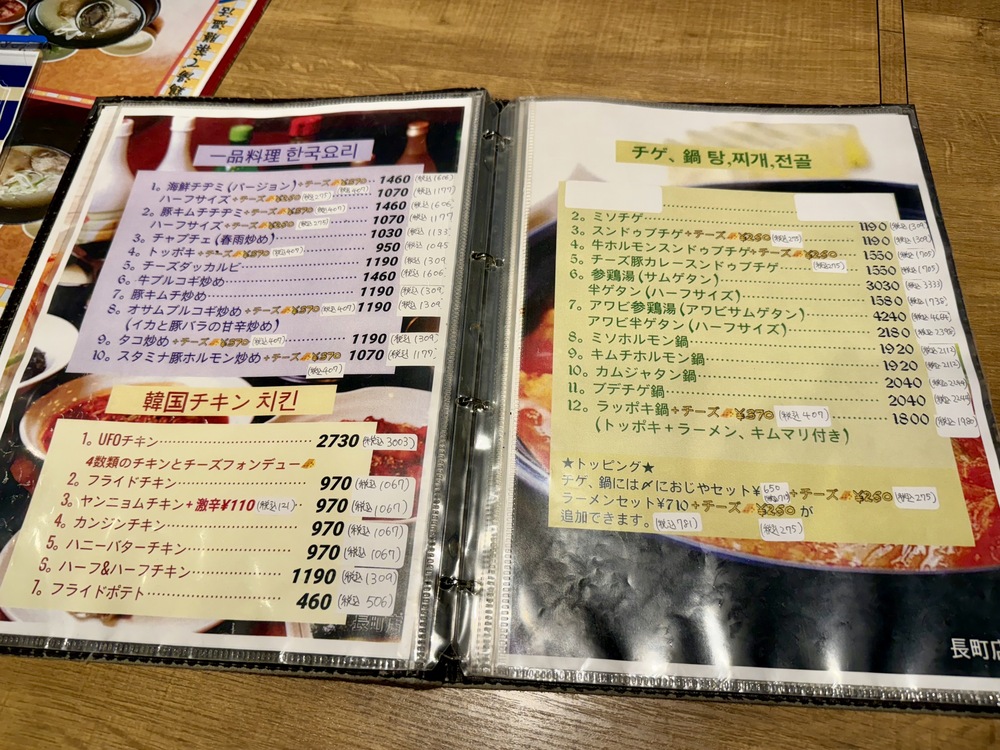 一品料理 한국요리
1。海鮮チヂミ(バージョン)+チーズ¥370(税込407)‥1460(税込1606)
ハーフサイズ+チーズ¥250(税込275)‥1070(税込1177)
2。豚キムチチヂミ+チーズ¥370(税込407)‥1460(税込1606)
ハーフサイズ+チーズ¥250(税込275)‥1070(税込1177
3。チャプチェ(春雨炒め)‥1030(税込1133
4。トッポキ+チーズ¥370(税込407)‥950(税込1045
5。チーズダッカルビ‥1190(税込1309
6。牛プルコギ炒め‥1460(税込1606
7。豚キムチ炒め‥1190(税込1309
8。オサムプルコギ炒め+チーズ¥370(税込407)‥1190(税込1309
(イカと豚バラの甘辛炒め)
9。タコ炒め+チーズ¥370(税込407)‥1190(税込1309
10。スタミナ豚ホルモン炒め+チーズ¥370‥1070(税込1177
(税込407)
韓国チキン 치킨
1。UFOチキン‥2730(税込3003)
4数類のチキンとチーズフォンデュー
2。フライドチキン‥970(税込1067)
3。ヤンニョムチキン+激辛¥110(税込121)‥970(税込1067)
4。カンジンチキン‥970(税込1067)
5。ハニーバターチキン‥970(税込1067)
6。ハーフ&ハーフチキン‥1190(税込1309)
7。フライドポテト‥460(税込506)
長町店
チゲ、鍋 탕,찌개,전골
2。ミソチゲ‥1190(税込1309)
3。スンドゥブチゲ+チーズ¥250(税込275)‥1190(税込1309)
4。牛ホルモンスンドゥブチゲ+チーズ¥250‥1550(税込1705)
5。チーズ豚カレースンドゥブチゲ‥(税込275)1550(税込1705)
6。参鶏湯(サムゲタン)‥3030(税込3333)
半ゲタン(ハーフサイズ)‥1580(税込1738)
7。アワビ参鶏湯(アワビサムゲタン)‥4240(税込4664)
アワビ半ゲタン(ハーフサイズ)‥2180(税込2398)
8。ミソホルモン鍋‥1920(税込2112)
9。キムチホルモン鍋‥1920(税込2112)
10。カムジャタン鍋‥2040(税込2244)
11。ブデチゲ鍋‥2040(税込2244)
12。ラッポキ鍋+チーズ¥370(税込407)‥1800(税込1980)
(トッポキ+ラーメン、キムマリ付き)
★トッピング★
チゲ、鍋には〆におじやセット¥650(税込715)+チーズ¥250(税込275)
ラーメンセット¥710+チーズ¥250が
追加できます。(税込781)(税込275)
長町店